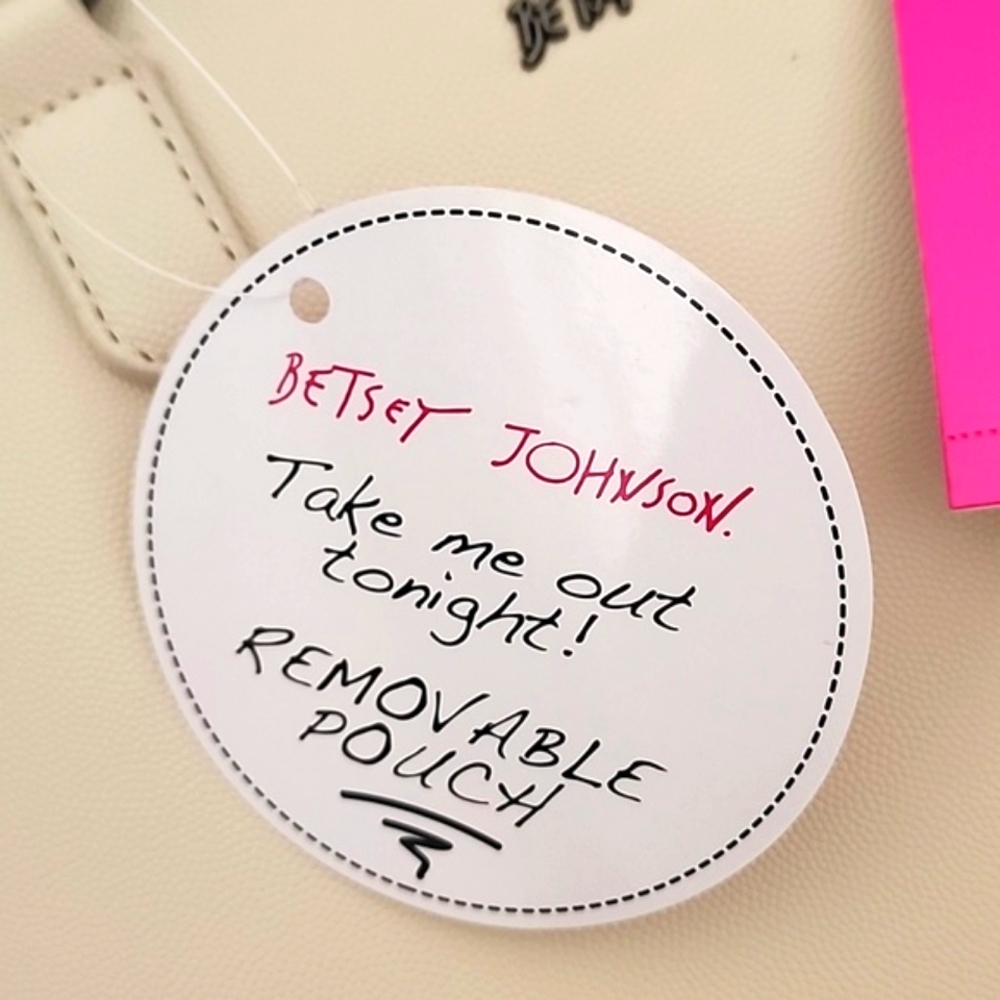 BETSEY JOHNSON.
Take me out
tonight!
REMOVABLE
POUCH